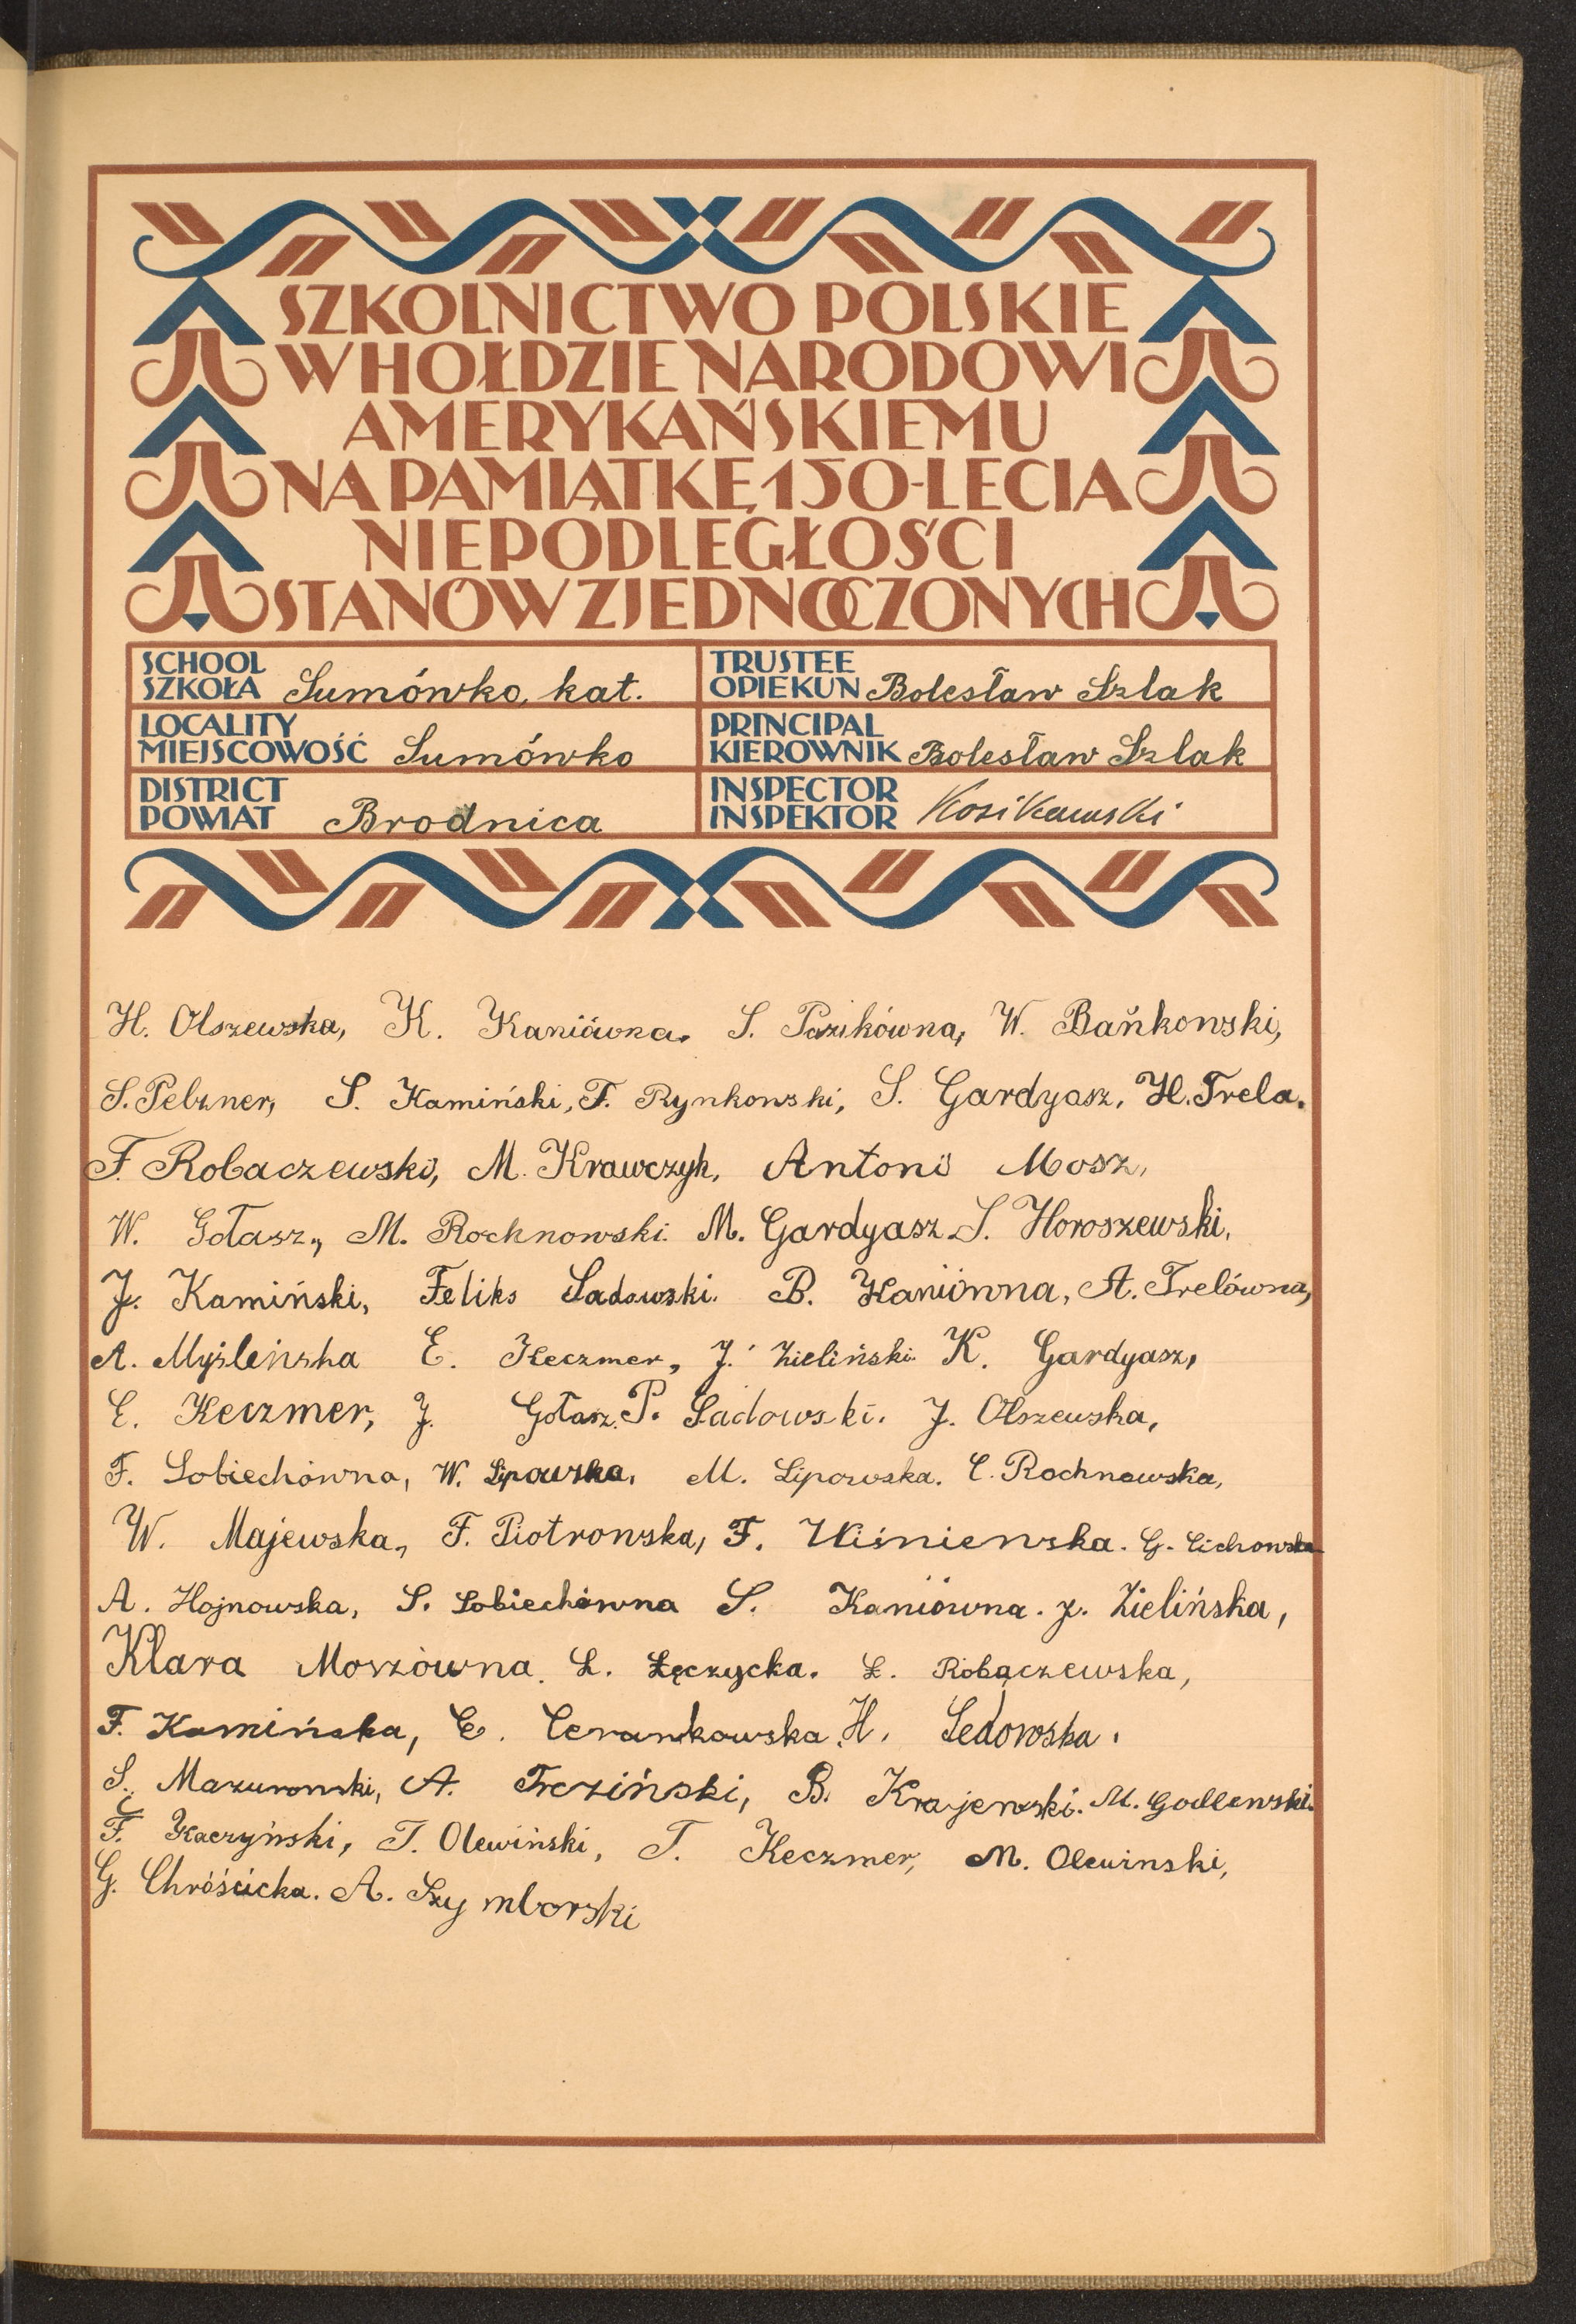 SZKOLNICTWO POLSKIE
W HOŁDZIE NARODOWI
AMERYKAŃSKIEMU
NA PAMIĄTKĘ 150-LECIA
NIEPODLEGŁOŚCI
STANÓW ZJEDNOCZONYCH
SCHOOL
SZKOŁA Sumówko, kat.
TRUSTEE
OPIEKUN Bolesław Szlak
LOCALITY
MIEJSCOWOŚĆ Sumówko
PRINCIPAL
KIEROWNIK Bolesław Szlak
DISTRICT
POWIAT Brodnica
INSPECTOR
INSPEKTOR
H. Olszewska, K. Kaniówna. S. Pazikówna, W. Bańkowski,
S. Pelzner, S. Kamiński, F. Rynkowski, S. Gardyasz, H. Trela.
F. Robaczewski, M. Krawczyk, Antoni Mosz,
W. Gołasz, M. Rochnowski. M. Gardyasz S. Horoszewski,
J. Kamiński, Feliks Sadowski. B. Kaniówna, A. Trelówna,
A. Myśleńska E. Keczmer, J. Zieliński K. Gardyasz,
E. Keczmer, J. Gołasz. P. Sadowski. J. Olszewska,
F. Sobiechówna, W. Lipowska, M. Lipowska. C. Rochnowska,
W. Majewska, F. Piotrowska, F. Wiśniewska. G. Cichowska
A. Hojnowska, S. Sobiechówna S. Kaniówna. J. Zielińska,
Klara Moszówna. Ł. Łęczycka. Ł. Robaczewska,
F. Kamińska, C. Cerankowska. H. Sedowska.
S. Mazurowski, A. Trcziński, B. Krajewski. M. Godlewski.
F. Kaczyński, T. Olewiński, T. Keczmer, M. Olewinski,
G. Chróścicka. A. Szymborski